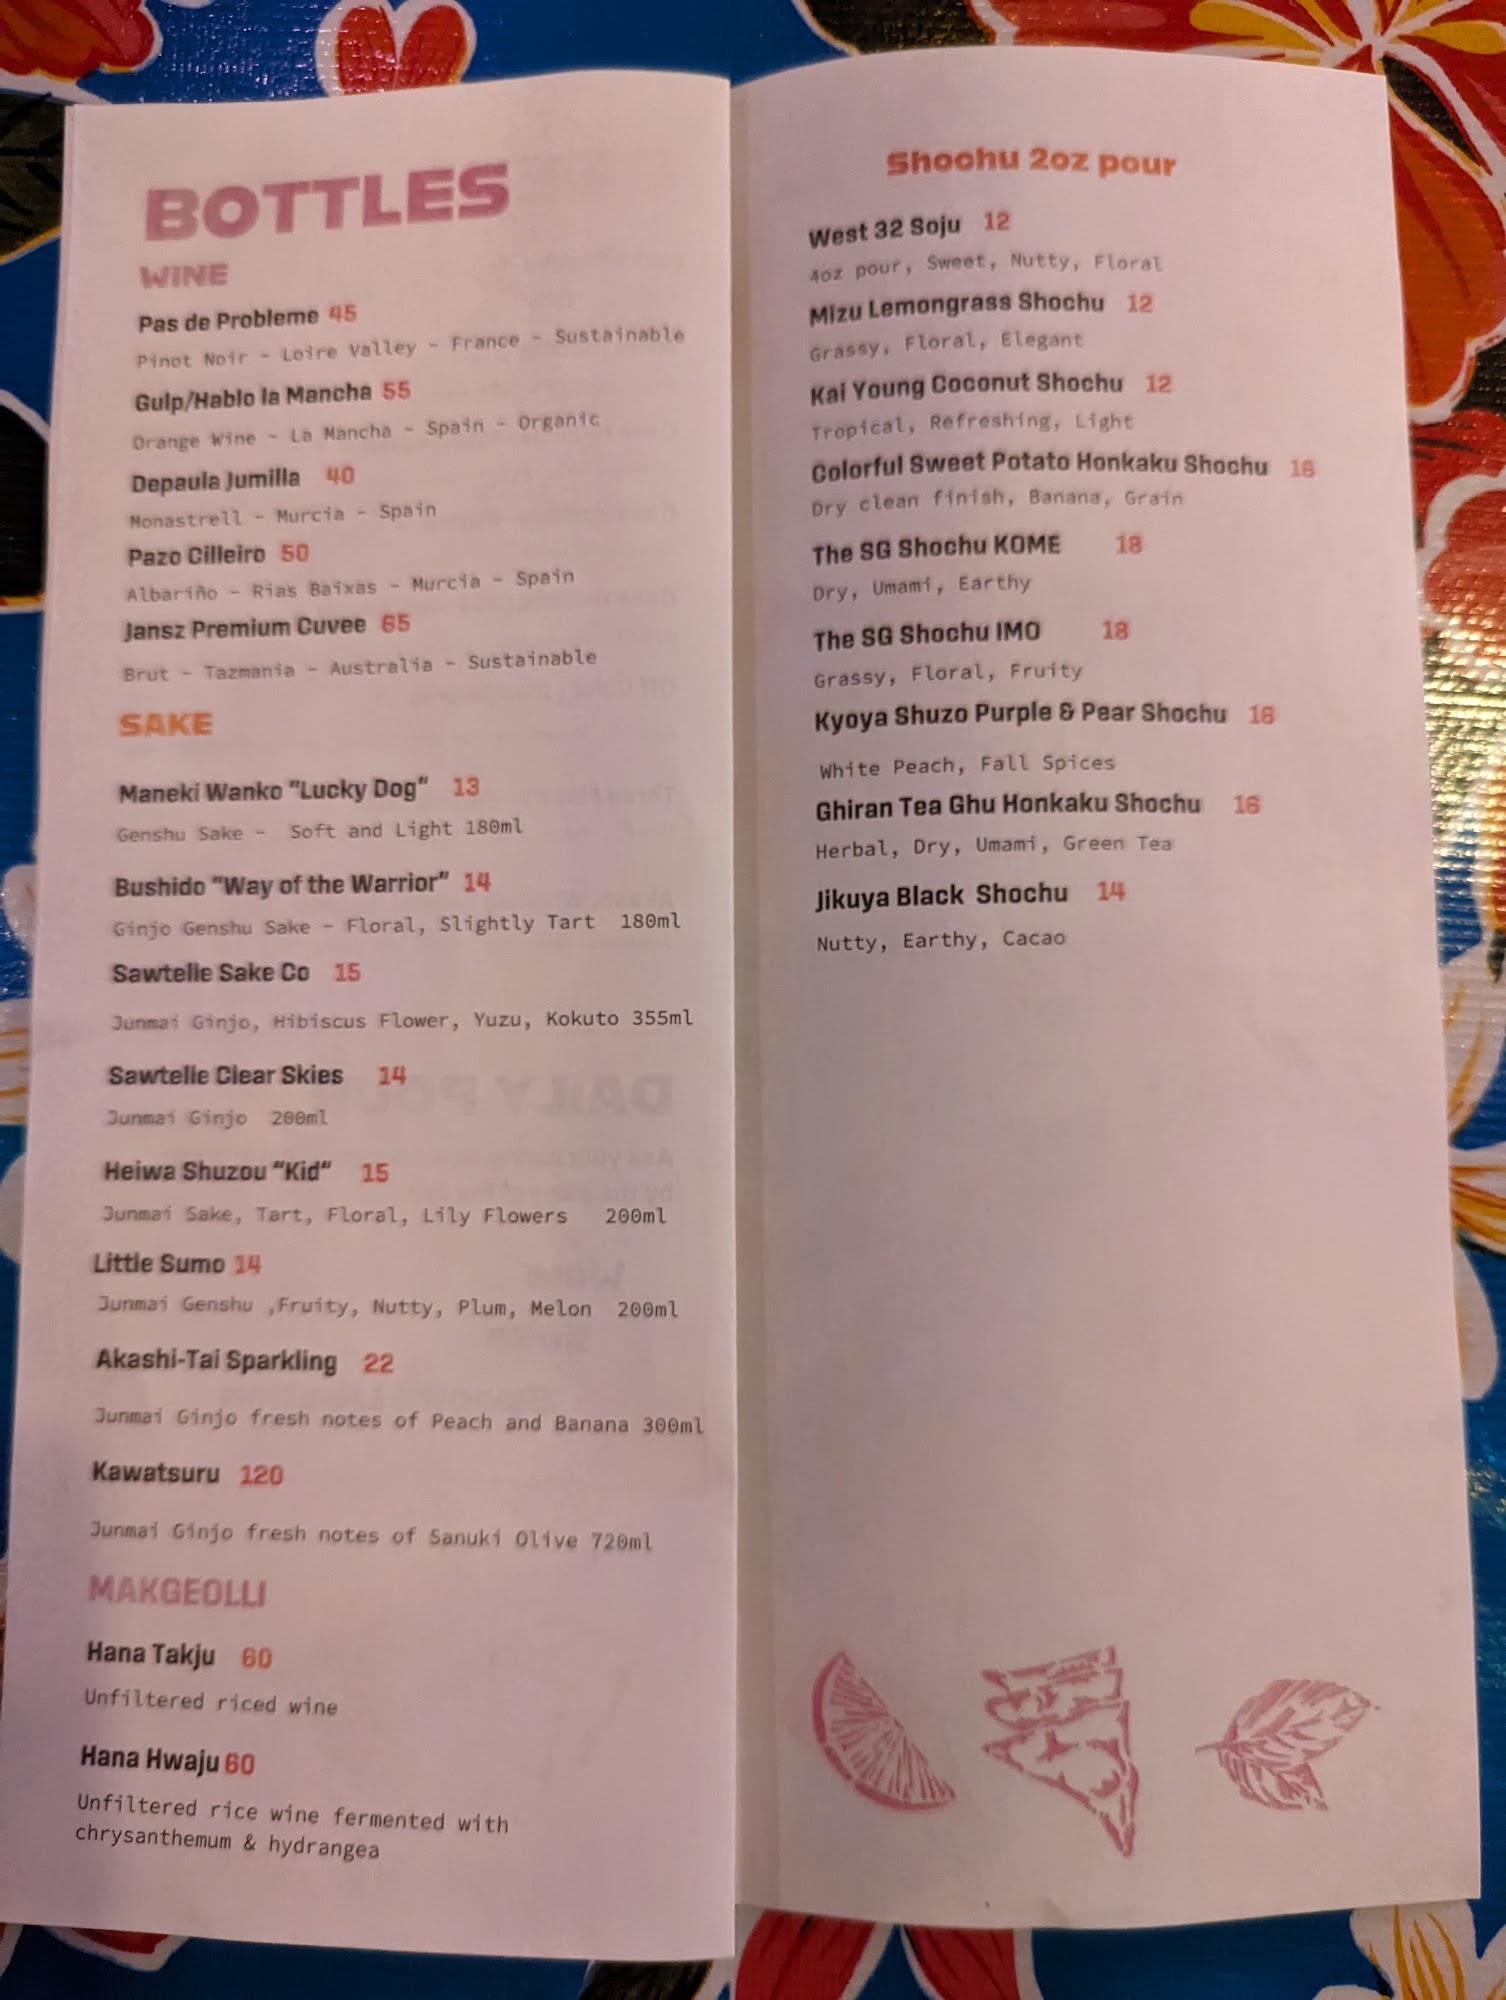 BOTTLES
WINE
Pas de Probleme 45
Pinot Noir - Loire Valley - France - Sustainable
Gulp/Hablo la Mancha 55
Orange Wine - La Mancha - Spain - Organic
Depaula Jumilla 40
Monastrell - Murcia - Spain
Pazo Cilleiro 50
Albariño - Rias Baixas - Murcia - Spain
Jansz Premium Cuvee 65
Brut - Tazmania - Australia - Sustainable
SAKE
Maneki Wanko "Lucky Dog" 13
Genshu Sake - Soft and Light 180ml
Bushido "Way of the Warrior" 14
Ginjo Genshu Sake - Floral, Slightly Tart 180ml
Sawtelle Sake Co 15
Junmai Ginjo, Hibiscus Flower, Yuzu, Kokuto 355ml
Sawtelle Clear Skies 14
Junmai Ginjo 200ml
Heiwa Shuzou "Kid" 15
Junmai Sake, Tart, Floral, Lily Flowers 200ml
Little Sumo 14
Junmai Genshu ,Fruity, Nutty, Plum, Melon 200ml
Akashi-Tai Sparkling 22
Junmai Ginjo fresh notes of Peach and Banana 300ml
Kawatsuru 120
Junmai Ginjo fresh notes of Sanuki Olive 720ml
MAKGEOLLI
Hana Takju 60
Unfiltered riced wine
Hana Hwaju 60
Unfiltered rice wine fermented with
chrysanthemum & hydrangea
Shochu 2oz pour
West 32 Soju 12
4oz pour, Sweet, Nutty, Floral
Mizu Lemongrass Shochu 12
Grassy, Floral, Elegant
Kai Young Coconut Shochu 12
Tropical, Refreshing, Light
Colorful Sweet Potato Honkaku Shochu 16
Dry clean finish, Banana, Grain
The SG Shochu KOME 18
Dry, Umami, Earthy
The SG Shochu IMO 18
Grassy, Floral, Fruity
Kyoya Shuzo Purple & Pear Shochu 16
White Peach, Fall Spices
Ghiran Tea Ghu Honkaku Shochu 16
Herbal, Dry, Umami, Green Tea
Jikuya Black Shochu 14
Nutty, Earthy, Cacao